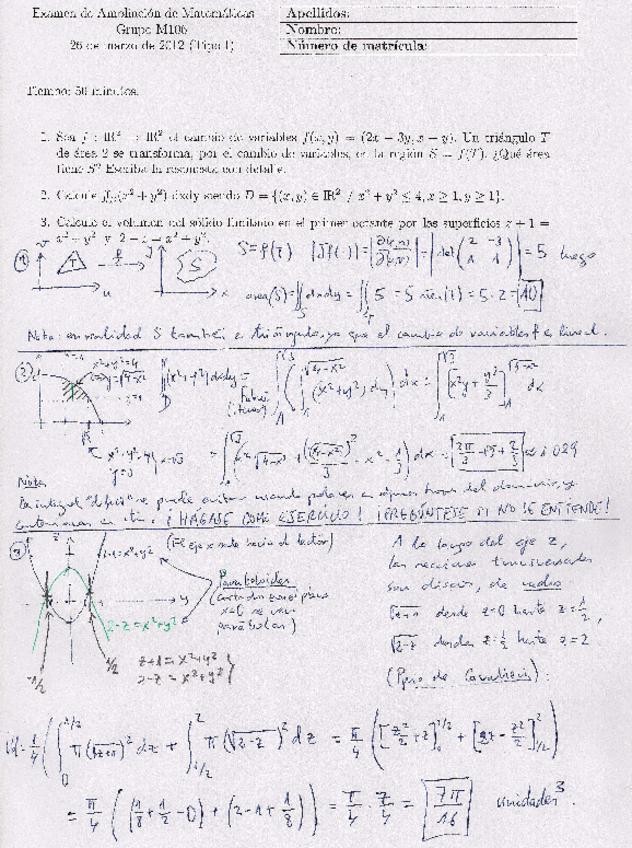 Examen de Ampliación de Matemáticas
Grupo M106
26 de marzo de 2012 (Tipo I)
Apellidos:
Nombre:
Número de matrícula:
Tiempo: 50 minutos.
1. Sea f : IR² → IR² el cambio de variables f(x, y) = (2x − 3y, x + y). Un triángulo T
de área 2 se transforma, por el cambio de variables, en la región S = f(T). ¿Qué área
tiene S? Escriba la respuesta con detalle.
2. Calcule ∬_D(x² + y²) dxdy siendo D = {(x, y) ∈ IR² / x² + y² ≤ 4, x ≥ 1, y ≥ 1}.
3. Calcule el volumen del sólido limitado en el primer octante por las superficies z + 1 =
x² + y² y 2 − z = x² + y².
① v T u f y S x S = f(T) = |det(2 -3 1 1)| = 5 luego
área(S) = ∬_S dxdy = ∬_T 5 = 5 área(T) = 5·2 = 10
Nota: en realidad S también es triángulo, ya que el cambio de variables f es lineal.
② x²+y²=4 ⇒ y=√(4-x²) ∬_D (x²+y²) dxdy = Fubini ∫_1^√3 (∫_1^√(4-x²) (x²+y²) dy) dx = ∫_1^√3 [x²y + y³/3]_1^√(4-x²) dx
= ∫_1^√3 (x²√(4-x²) + (√(4-x²))³/3 - x² - 1/3) dx =
Nota
La integral "difícil" se puede evitar usando polares en
¡HÁGASE COMO EJERCICIO! ¡PREGÚNTESE SI NO SE ENTIENDE!
③ z y (El eje x sale hacia el lector)
Paraboloides
(cortados por el plano
x=0 se ven
parábolas)
2-z = x²+y²
z+1 = x²+y²
2-z = x²+y²
-1/2 1/2
A lo largo del eje z,
las secciones transversales
son discos, de radio
√(z+1) desde z=0 hasta z=1/2,
√(2-z) desde z=1/2 hasta z=2
(Ppio de Cavalieri):
Vol = 1/4 (∫_0^1/2 π(√(z+1))² dz + ∫_1/2^2 π(√(2-z))² dz = π/4 ([z²/2 + z]_0^1/2 + [2z - z²/2]_1/2^2)
= π/4 ((1/8 + 1/2 - 0) + (2 - 1 + 1/8)) = π/4 · 7/4 = 7π/16 unidades³.